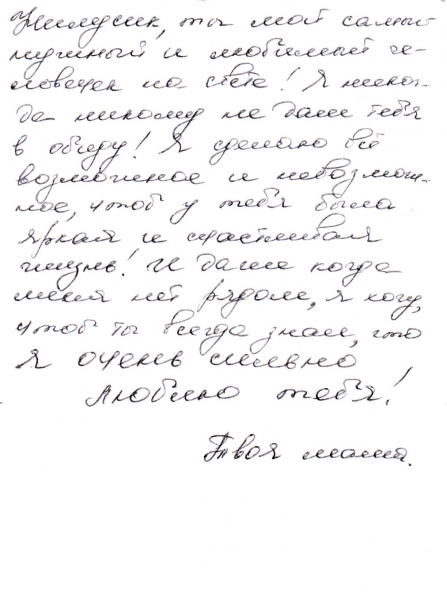 ты мой самый
нужный и любимый че-
ловечек на свете! Я нико-
да никому не дам тебя
в обиду! Я сделаю всё
возможное и невозмож-
ное, чтоб у тебя была
яркая и счастливая
жизнь! И даже когда
меня нет рядом, я хочу,
чтоб ты всегда знал, что
я очень сильно
люблю тебя!
Твоя мама.